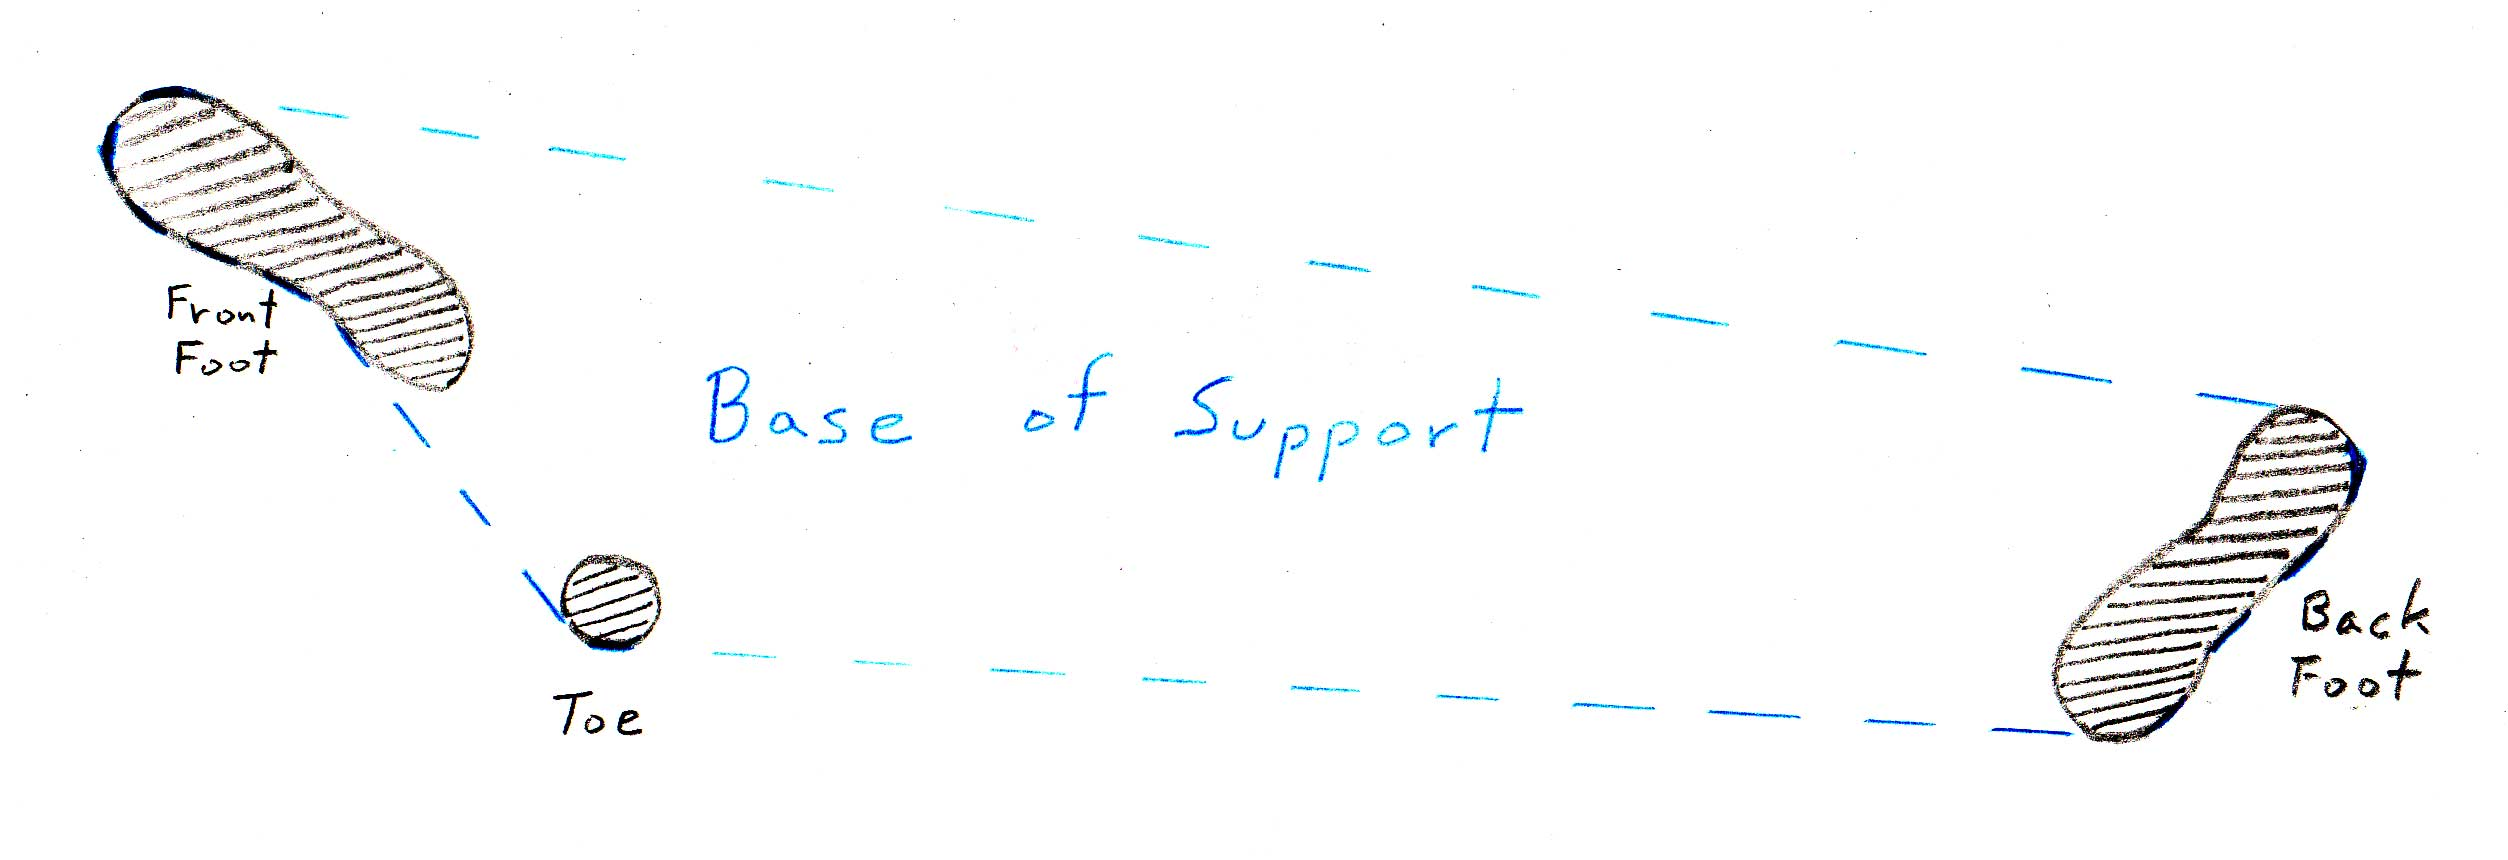 Front
Foot
Base of Support
Back
Foot
Toe